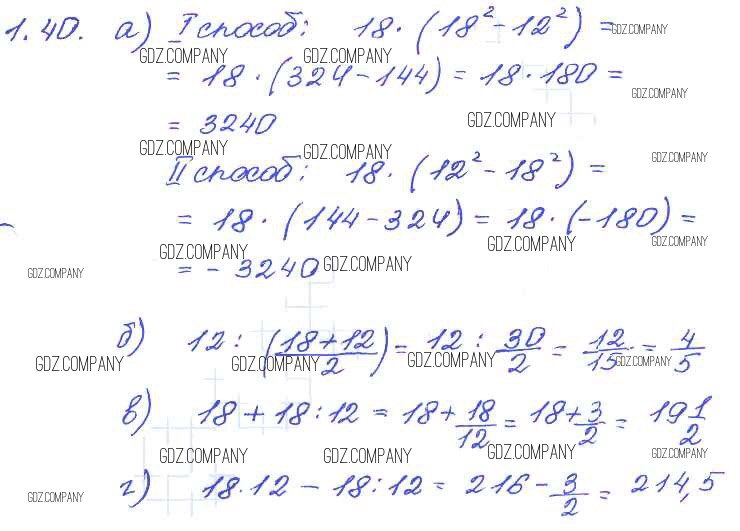 1.40. а) I способ: 18 · (18² - 12²) =
GDZ.COMPANY
GDZ.COMPANY GDZ.COMPANY
= 18 · (324 - 144) = 18 · 180 =
GDZ.COMPANY
= 3240
GDZ.COMPANY
GDZ.COMPANY GDZ.COMPANY
GDZ.COMPANY
II способ: 18 · (12² - 18²) =
= 18 · (144 - 324) = 18 · (-180) =
GDZ.COMPANY GDZ.COMPANY GDZ.COMPANY
= - 3240
GDZ.COMPANY GDZ.COMPANY
б) 12 : ((18+12)/2) = 12 : 30/2 = 12/15 = 4/5
GDZ.COMPANY GDZ.COMPANY GDZ.COMPANY GDZ.COMPANY
в) 18 + 18 : 12 = 18 + 18/12 = 18 + 3/2 = 19 1/2
GDZ.COMPANY GDZ.COMPANY GDZ.COMPANY GDZ.COMPANY
г) 18 · 12 - 18 : 12 = 216 - 3/2 = 214,5
GDZ.COMPANY